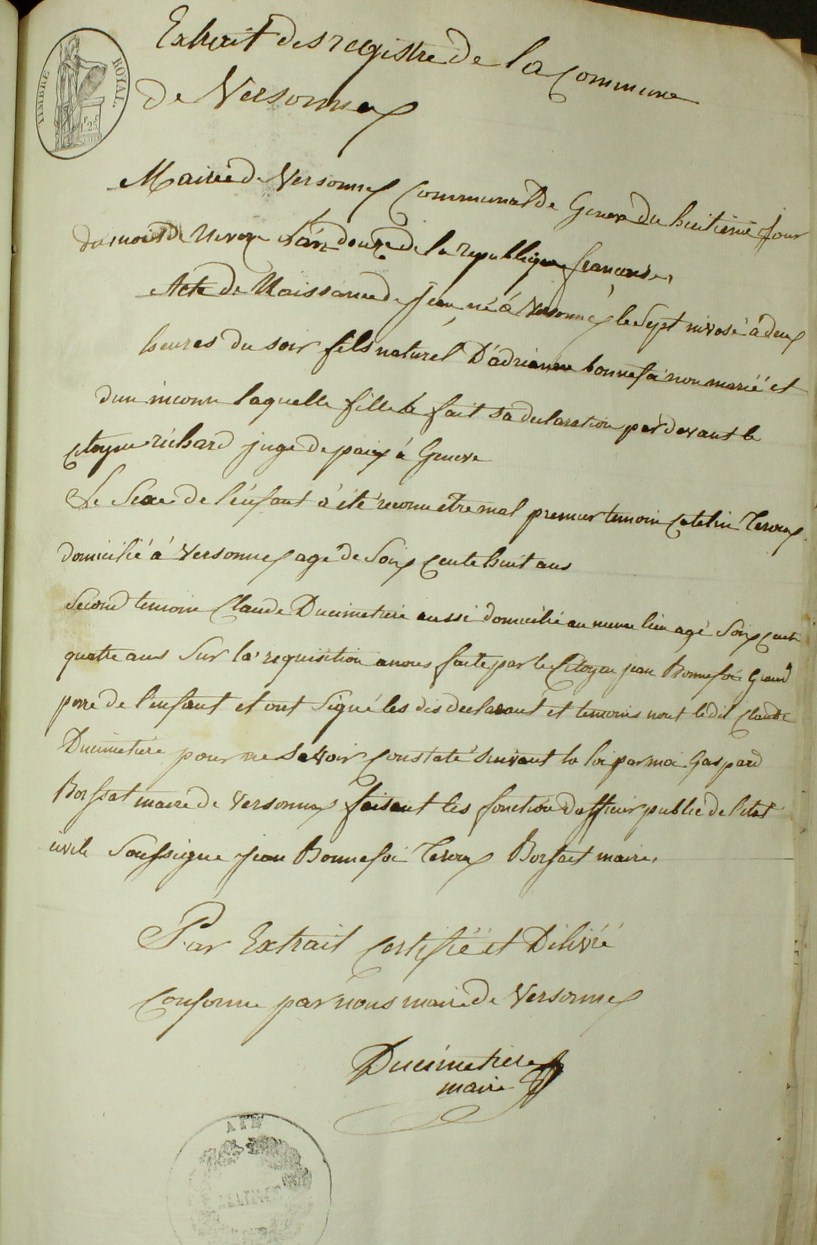 TIMBRE ROYAL.
Extrait des registre de la Commune
de Versonnex
Mairie de Versonnex Communal De Genex du huitieme Jour
du mois de Nivoze L'an douze de la republique francaise,
Acte de Naissance de Jean né à Versonnex le Sept nivose à deux
heures du soir fils naturel D'adrianne bonnefoi non marié et
d'un inconu laquelle fille à fait sa declaration par devant le
Citoyen richard juge de paix à Genex
Le Sexe de l'énfant à été reconu être mal premier temoin Catelin Teroux
domicilié à Versonnex agé de Soix cente huit ans
Second temoin Claude Ducimetiere aussi domicilié au meme lieu agé Soix cente
quatre ans Sur la requisition a nous faite par le Citoyen jean Bonnefoi Grand
pere de l'enfant et ont Signé les dis declarant et temoins nont ledit Claude
Ducimetiere pour ne Savoir Constaté Suivant la loi par moi Gaspard
Borssat maire de Versonnex faisant les fonction d'officier public de l'état
civile Soussigne jean Bonnefoi Teroux Borssat maire,
Par Extrait Certifié et Délivré
Conforme par nous maire de Versonnex
Ducimetiere
maire
AIN